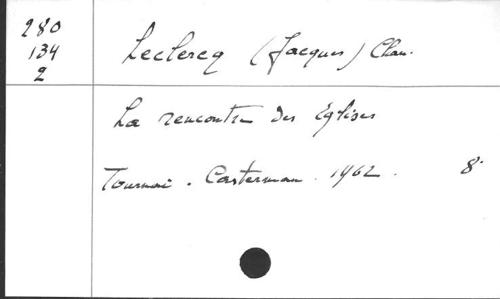 280
134
2
Leclercq (Jacques) Chan.
La rencontre des Eglises
Tournai . Casterman . 1962 . 8°